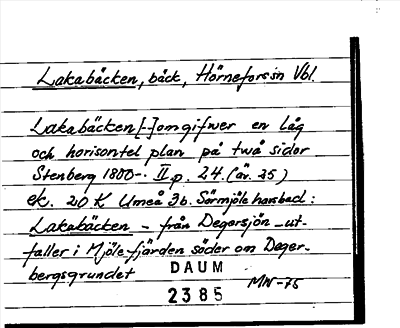 Lakabäcken, bäck, Hörnefors sn Vbl.
Lakabäcken [-] omgifwer en låg
och horisontel plan på twå sidor
Stenberg 1800-. II p. 24. (äv. 25)
ek. 20 K Umeå 3b. Sörmjöle havsbad:
Lakabäcken - från Degersjön ut-
faller i Mjöle-fjärden söder om Deger-
bergsgrundet
DAUM
2385
MW-75